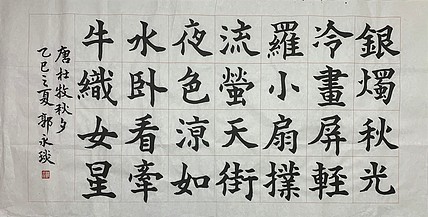 銀燭秋光
冷畫屏輕
羅小扇撲
流螢天街
夜色涼如
水卧看牽
牛織女星
唐杜牧秋夕
乙巳之夏 郭永琰